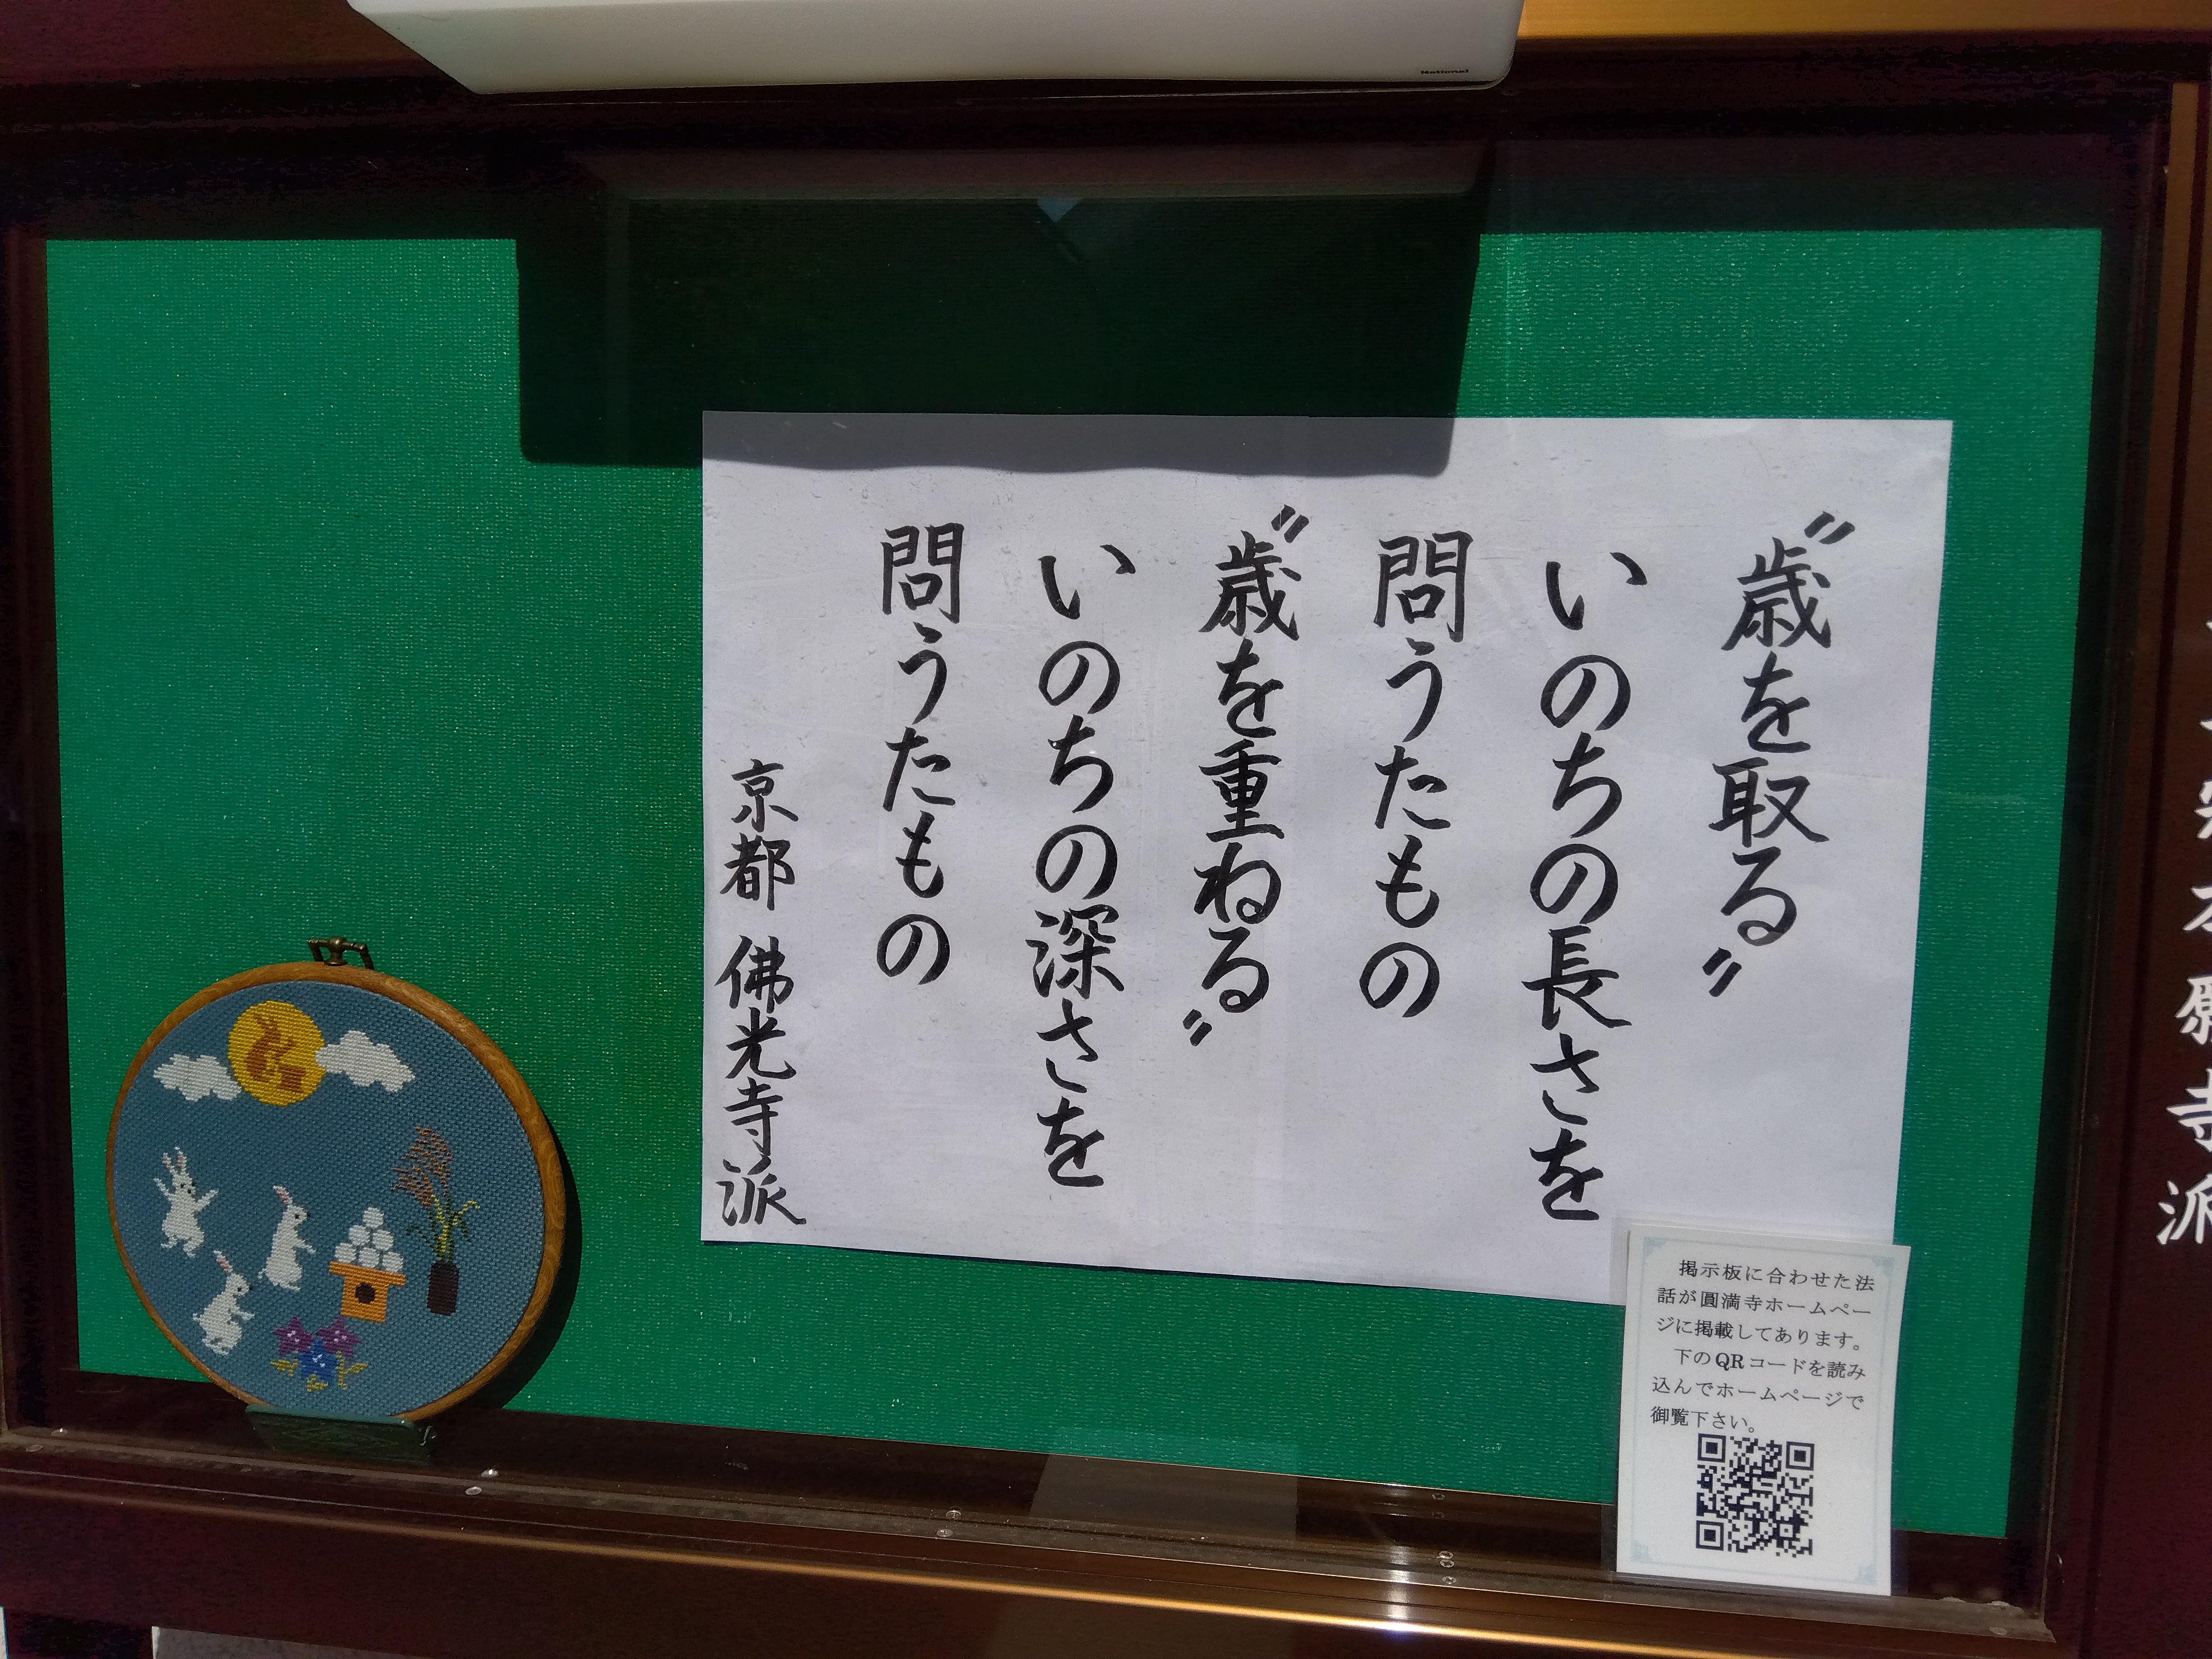 〝歳を取る〟
いのちの長さを
問うたもの
〝歳を重ねる〟
いのちの深さを
問うたもの
京都 佛光寺派
掲示板に合わせた法
話が圓満寺ホームペー
ジに掲載してあります。
下のQRコードを読み
込んでホームページで
御覧下さい。
本願寺派
National